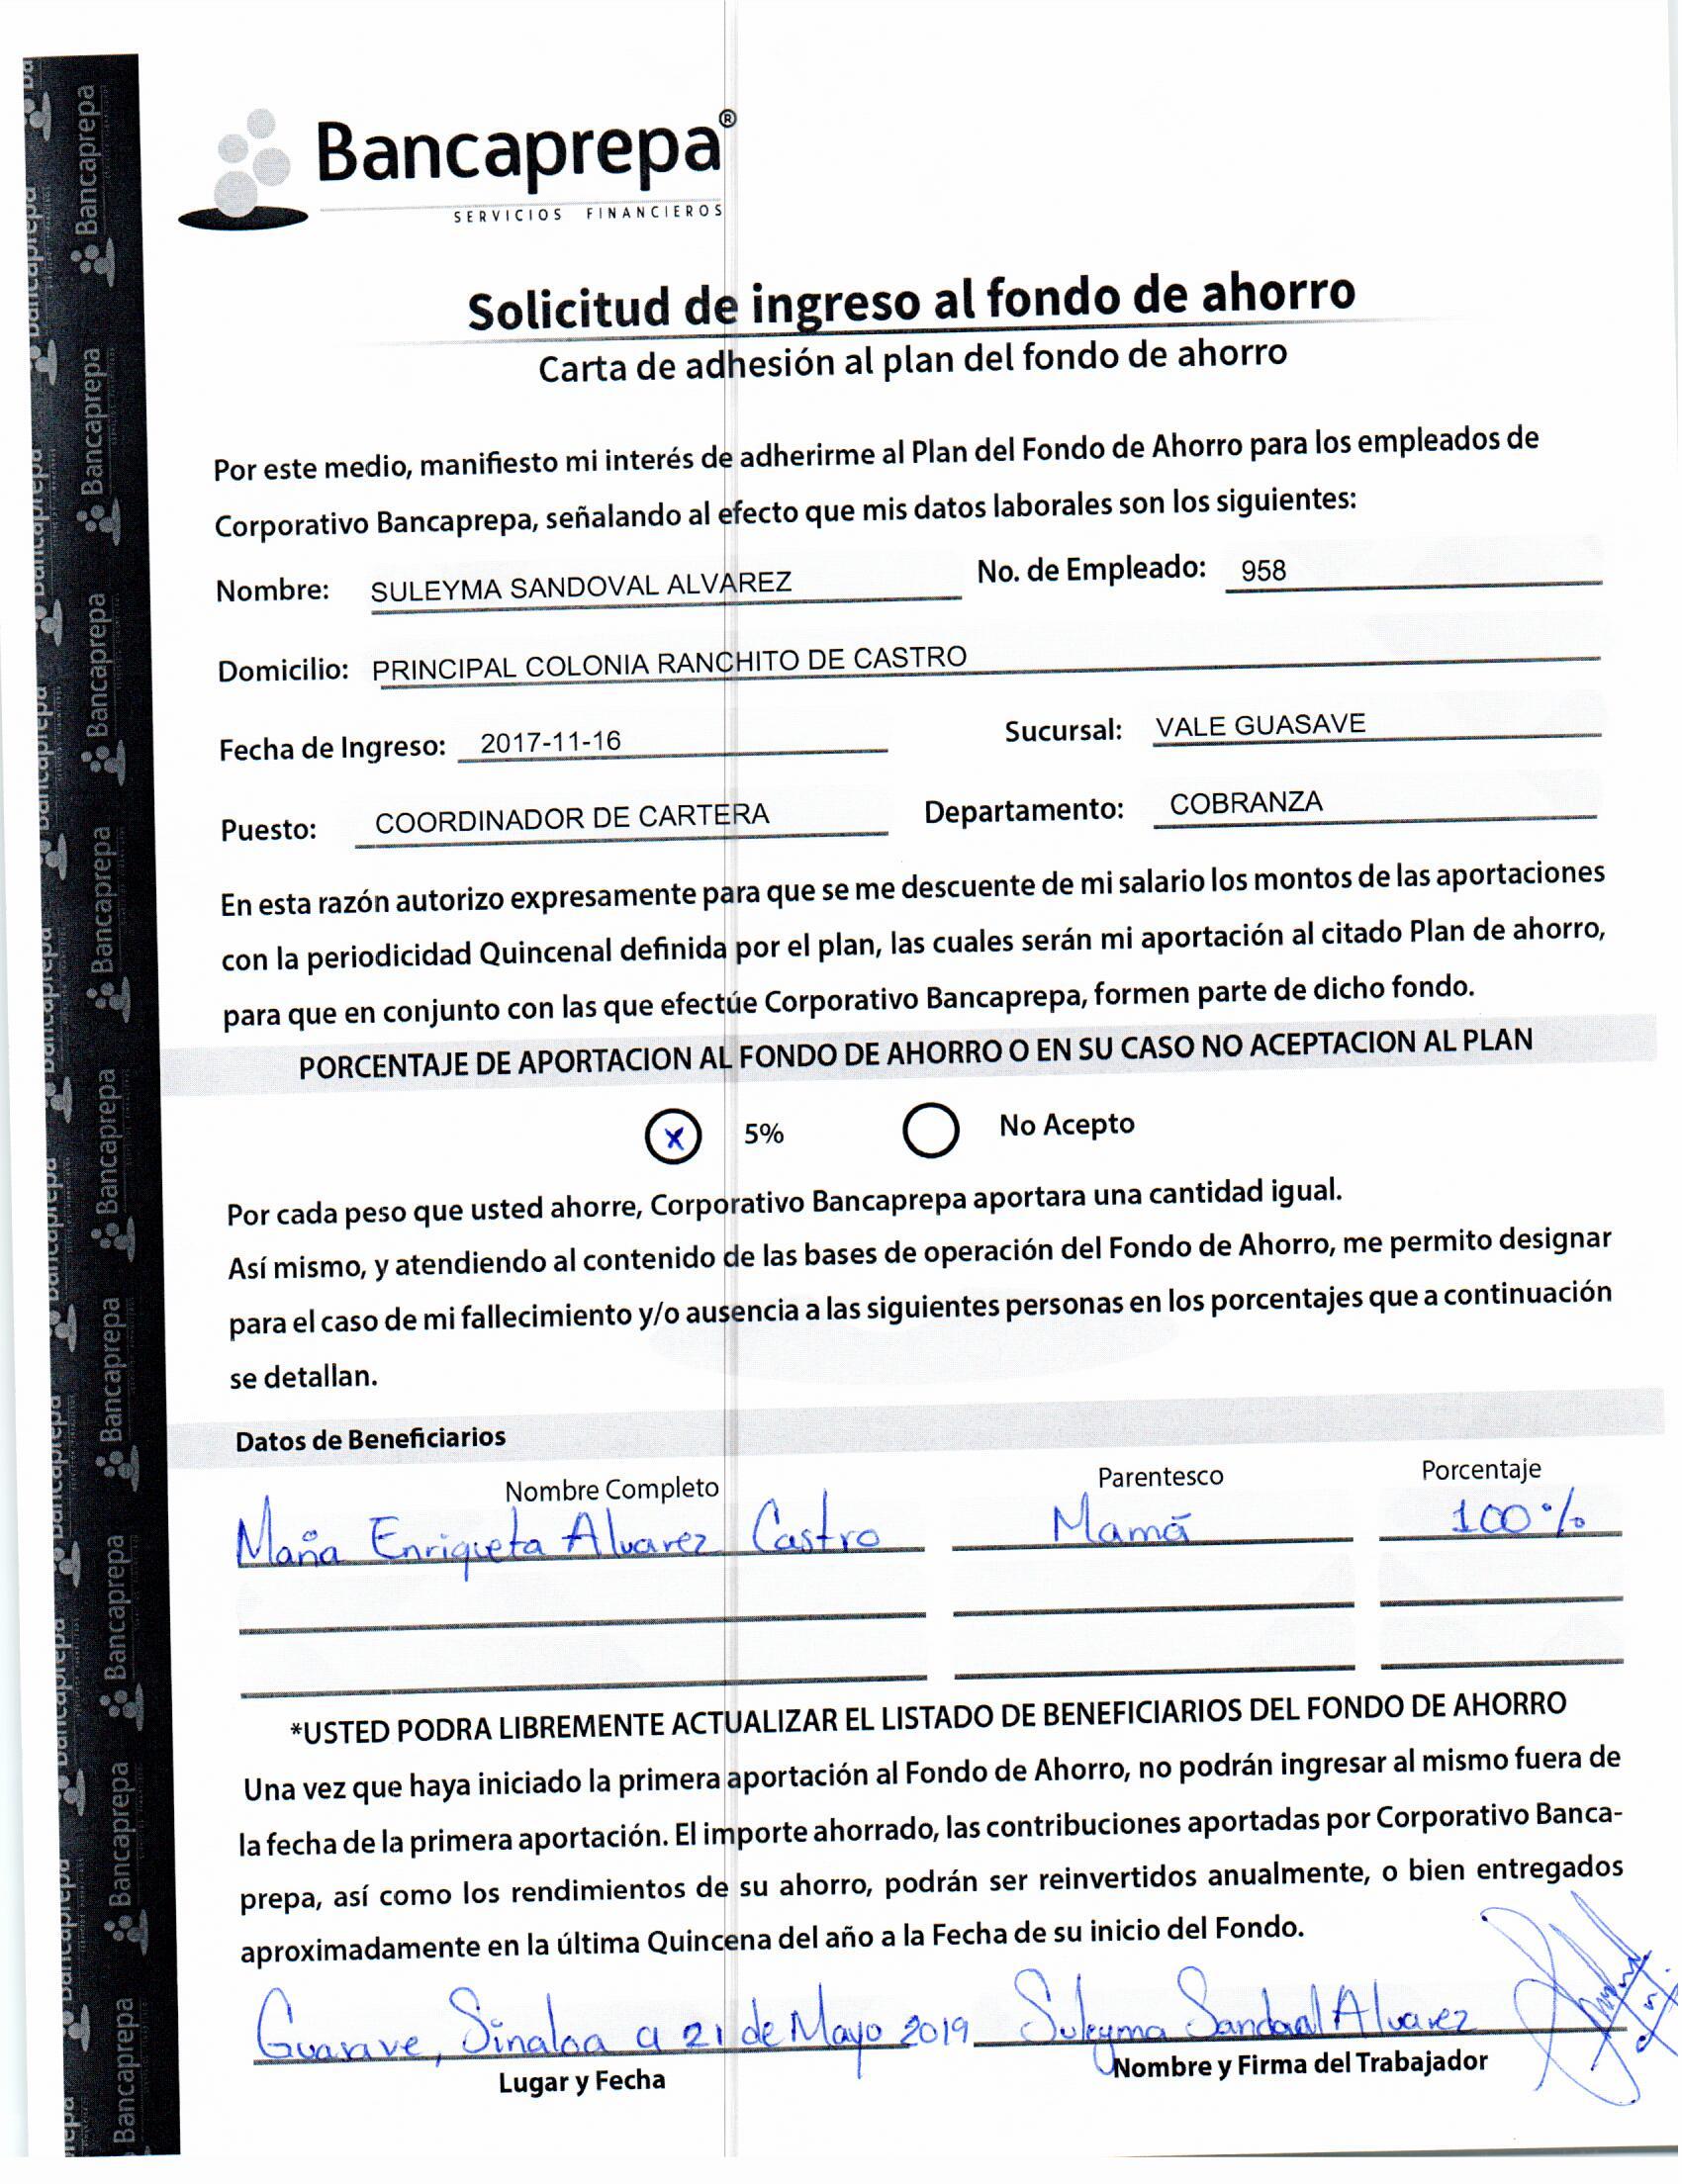 Bancaprepa®
SERVICIOS FINANCIEROS
Solicitud de ingreso al fondo de ahorro
Carta de adhesión al plan del fondo de ahorro
Por este medio, manifiesto mi interés de adherirme al Plan del Fondo de Ahorro para los empleados de
Corporativo Bancaprepa, señalando al efecto que mis datos laborales son los siguientes:
Nombre: SULEYMA SANDOVAL ALVAREZ No. de Empleado: 958
Domicilio: PRINCIPAL COLONIA RANCHITO DE CASTRO
Fecha de Ingreso: 2017-11-16 Sucursal: VALE GUASAVE
Puesto: COORDINADOR DE CARTERA Departamento: COBRANZA
En esta razón autorizo expresamente para que se me descuente de mi salario los montos de las aportaciones
con la periodicidad Quincenal definida por el plan, las cuales serán mi aportación al citado Plan de ahorro,
para que en conjunto con las que efectúe Corporativo Bancaprepa, formen parte de dicho fondo.
PORCENTAJE DE APORTACION AL FONDO DE AHORRO O EN SU CASO NO ACEPTACION AL PLAN
x 5% No Acepto
Por cada peso que usted ahorre, Corporativo Bancaprepa aportara una cantidad igual.
Así mismo, y atendiendo al contenido de las bases de operación del Fondo de Ahorro, me permito designar
para el caso de mi fallecimiento y/o ausencia a las siguientes personas en los porcentajes que a continuación
se detallan.
Datos de Beneficiarios
Nombre Completo Parentesco Porcentaje
María Enriqueta Alvarez Castro Mamá 100%
*USTED PODRA LIBREMENTE ACTUALIZAR EL LISTADO DE BENEFICIARIOS DEL FONDO DE AHORRO
Una vez que haya iniciado la primera aportación al Fondo de Ahorro, no podrán ingresar al mismo fuera de
la fecha de la primera aportación. El importe ahorrado, las contribuciones aportadas por Corporativo Banca-
prepa, así como los rendimientos de su ahorro, podrán ser reinvertidos anualmente, o bien entregados
aproximadamente en la última Quincena del año a la Fecha de su inicio del Fondo.
Guasave, Sinaloa a 21 de Mayo 2019 Suleyma Sandoval Alvarez
Lugar y Fecha Nombre y Firma del Trabajador